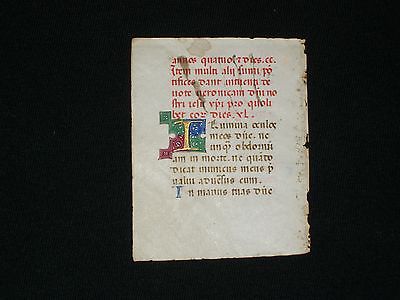 annos quatuor ⁊ dies. cc.
Item multi alii sumi po
tifices dant intuenti de
uote ueronicam dni no
stri iesu xpi pro quoli
bet eor dies. xl.
Illumina oculos
meos dñe. ne
unqͣ obdormi
am in morte. ne quado
dicat inimicus meus p
ualui aduersus eum.
In manus tuas dñe